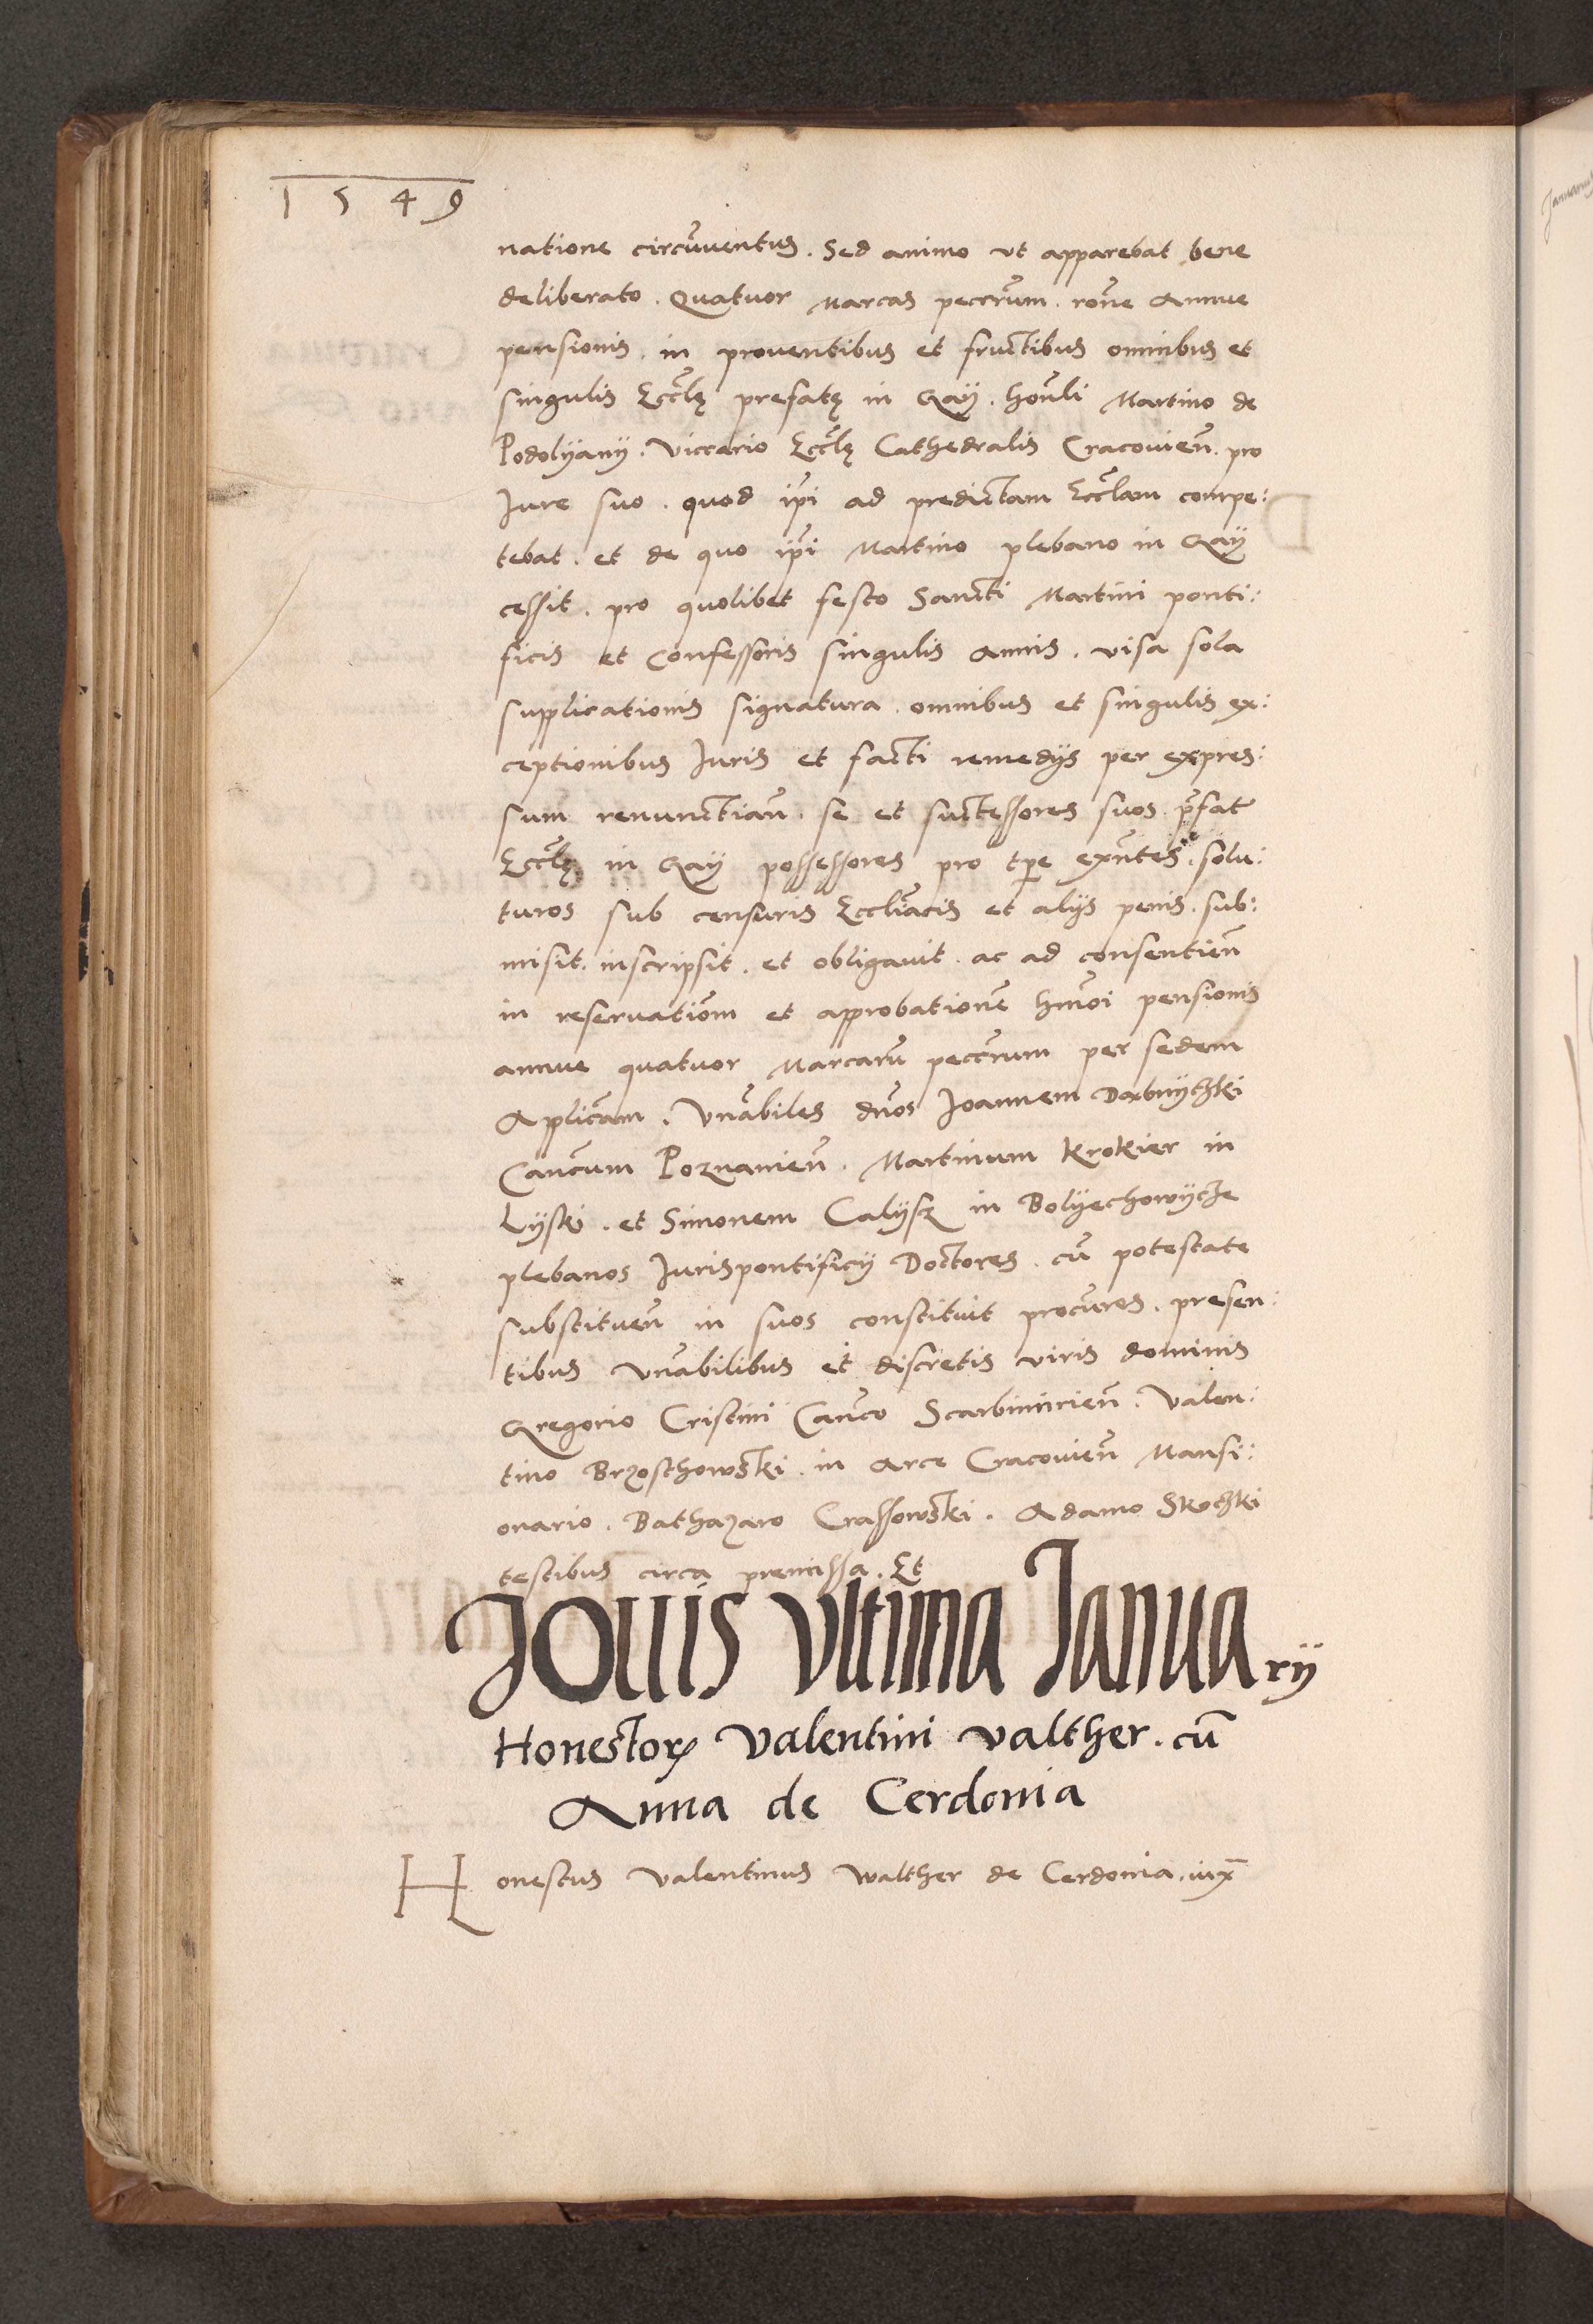 1549
natione circũuentus. Sed animo vt apparebat bene
deliberato. Quatuor Marcas peccr̃um. rõne Annue
pensionis. in prouentibus et fructibus omnibus et
singulis Eccl̃ę prefatę in Gay. Hoñli Martino de
Podolyany. Viccario Eccl̃ę Cathedralis Cracouieñ. pro
Iure suo. quod ip̃i ad predictam Eccl̃am compe:
tebat. et de quo ip̃i Martino plebano in Gay
cessit. pro quolibet festo Sancti Martini ponti:
ficis et Confessoris singulis Annis. visa sola
supplicationis signatura. omnibus et singulis ex:
ceptionibus Iuris et facti remedijs per expres:
sum renunctiañ. se et suctessores suos. p̃fat
Eccl̃ę in Gay possessores pro tp̃e exñtes. solu:
turos sub censuris Eccliãcis et alijs penis. sub:
misit. inscripsit. et obligauit. ac ad consentieñ
in reseruatiõm et approbationẽ hmõi pensionis
annue quatuor Marcarũ peccr̃um per sedem
Aplicãm. Vnãbiles dños Joannem Dorbnyczki
Cancũm Poznanieñ. Martinum Krokier in
Lyski. et Simonem Calysz in Bolyechowycze
plebanos Iurispontificij Doctores. cũ potestate
substitueñ in suos constituit procũres. presen:
tibus vnãbilibus et discretis viris dominis
Gregorio Cristini Cancõ Scarbimirieñ. Valen:
tino Brzosthowski. in Arce Cracouieñ Mansi:
onario. Bathazaro Crassowski. Adamo Skoczki
testibus circa premissa. Et
Jouis vltima Januarij
Honestorꝝ Valentini Valther. cũ
Anna de Cerdonia
Honestus Valentinus Walther de Cerdonia.